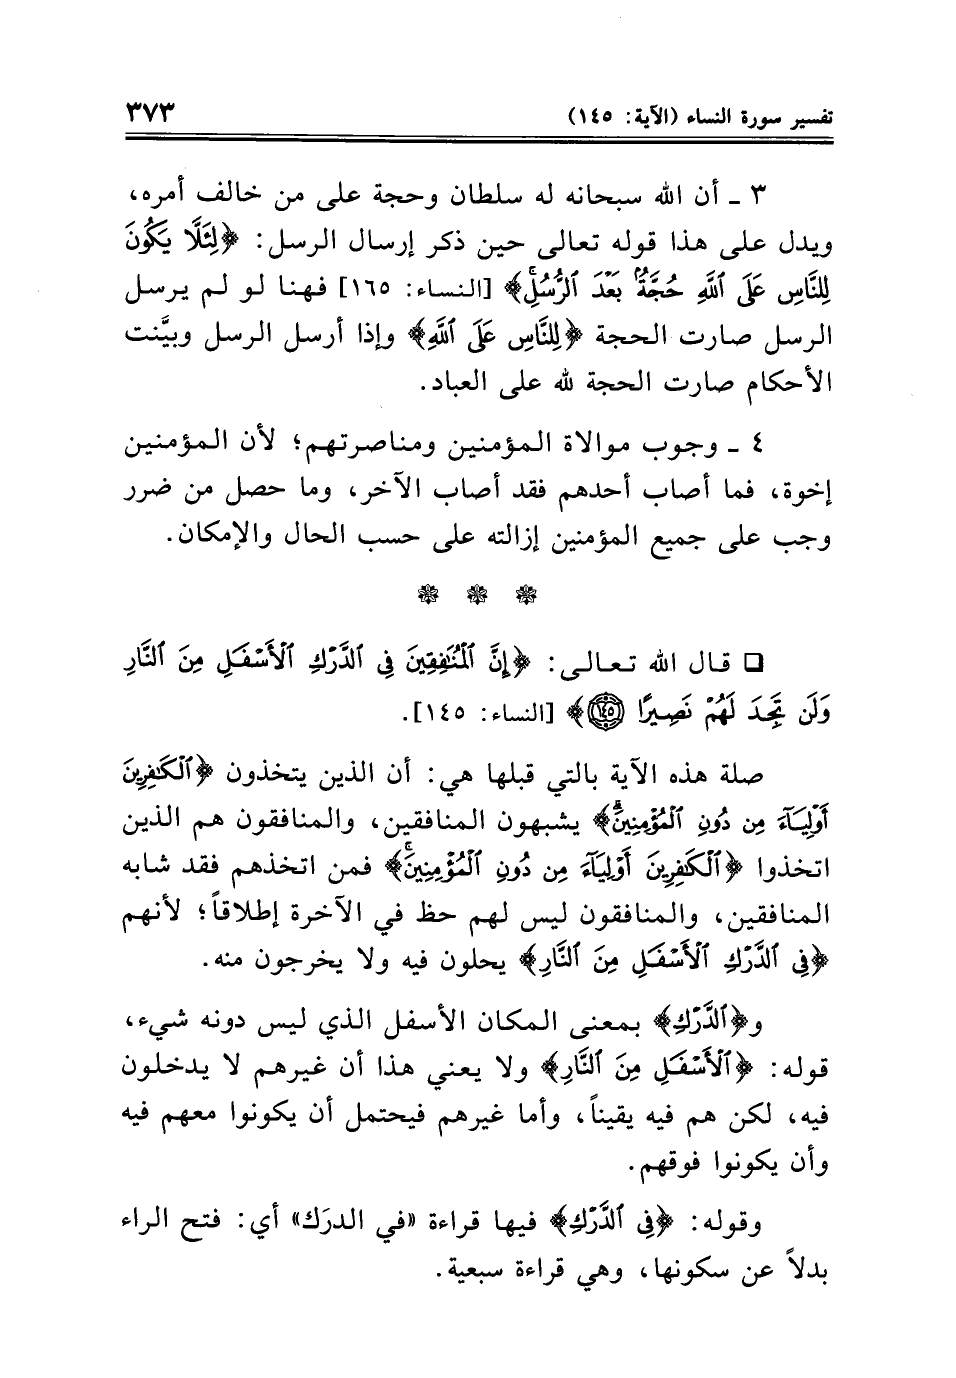 تفسير سورة النساء (الآية: ١٤٥) ٣٧٣
٣ ـ أن الله سبحانه له سلطان وحجة على من خالف أمره،
ويدل على هذا قوله تعالى حين ذكر إرسال الرسل: ﴿لِئَلَّا يَكُونَ
لِلنَّاسِ عَلَى ٱللَّهِ حُجَّةٌۢ بَعْدَ ٱلرُّسُلِۚ﴾ [النساء: ١٦٥] فهنا لو لم يرسل
الرسل صارت الحجة ﴿لِلنَّاسِ عَلَى ٱللَّهِ﴾ وإذا أرسل الرسل وبيَّنت
الأحكام صارت الحجة لله على العباد.
٤ ـ وجوب موالاة المؤمنين ومناصرتهم؛ لأن المؤمنين
إخوة، فما أصاب أحدهم فقد أصاب الآخر، وما حصل من ضرر
وجب على جميع المؤمنين إزالته على حسب الحال والإمكان.
❁ ❁ ❁
❑ قال الله تعالى: ﴿إِنَّ ٱلْمُنَٰفِقِينَ فِى ٱلدَّرْكِ ٱلْأَسْفَلِ مِنَ ٱلنَّارِ
وَلَن تَجِدَ لَهُمْ نَصِيرًا ١٤٥﴾ [النساء: ١٤٥].
صلة هذه الآية بالتي قبلها هي: أن الذين يتخذون ﴿ٱلْكَٰفِرِينَ
أَوْلِيَآءَ مِن دُونِ ٱلْمُؤْمِنِينَۚ﴾ يشبهون المنافقين، والمنافقون هم الذين
اتخذوا ﴿ٱلْكَٰفِرِينَ أَوْلِيَآءَ مِن دُونِ ٱلْمُؤْمِنِينَۚ﴾ فمن اتخذهم فقد شابه
المنافقين، والمنافقون ليس لهم حظ في الآخرة إطلاقاً؛ لأنهم
﴿فِى ٱلدَّرْكِ ٱلْأَسْفَلِ مِنَ ٱلنَّارِ﴾ يحلون فيه ولا يخرجون منه.
و﴿ٱلدَّرْكِ﴾ بمعنى المكان الأسفل الذي ليس دونه شيء،
قوله: ﴿ٱلْأَسْفَلِ مِنَ ٱلنَّارِ﴾ ولا يعني هذا أن غيرهم لا يدخلون
فيه، لكن هم فيه يقيناً، وأما غيرهم فيحتمل أن يكونوا معهم فيه
وأن يكونوا فوقهم.
وقوله: ﴿فِى ٱلدَّرْكِ﴾ فيها قراءة «في الدرَك» أي: فتح الراء
بدلاً عن سكونها، وهي قراءة سبعية.